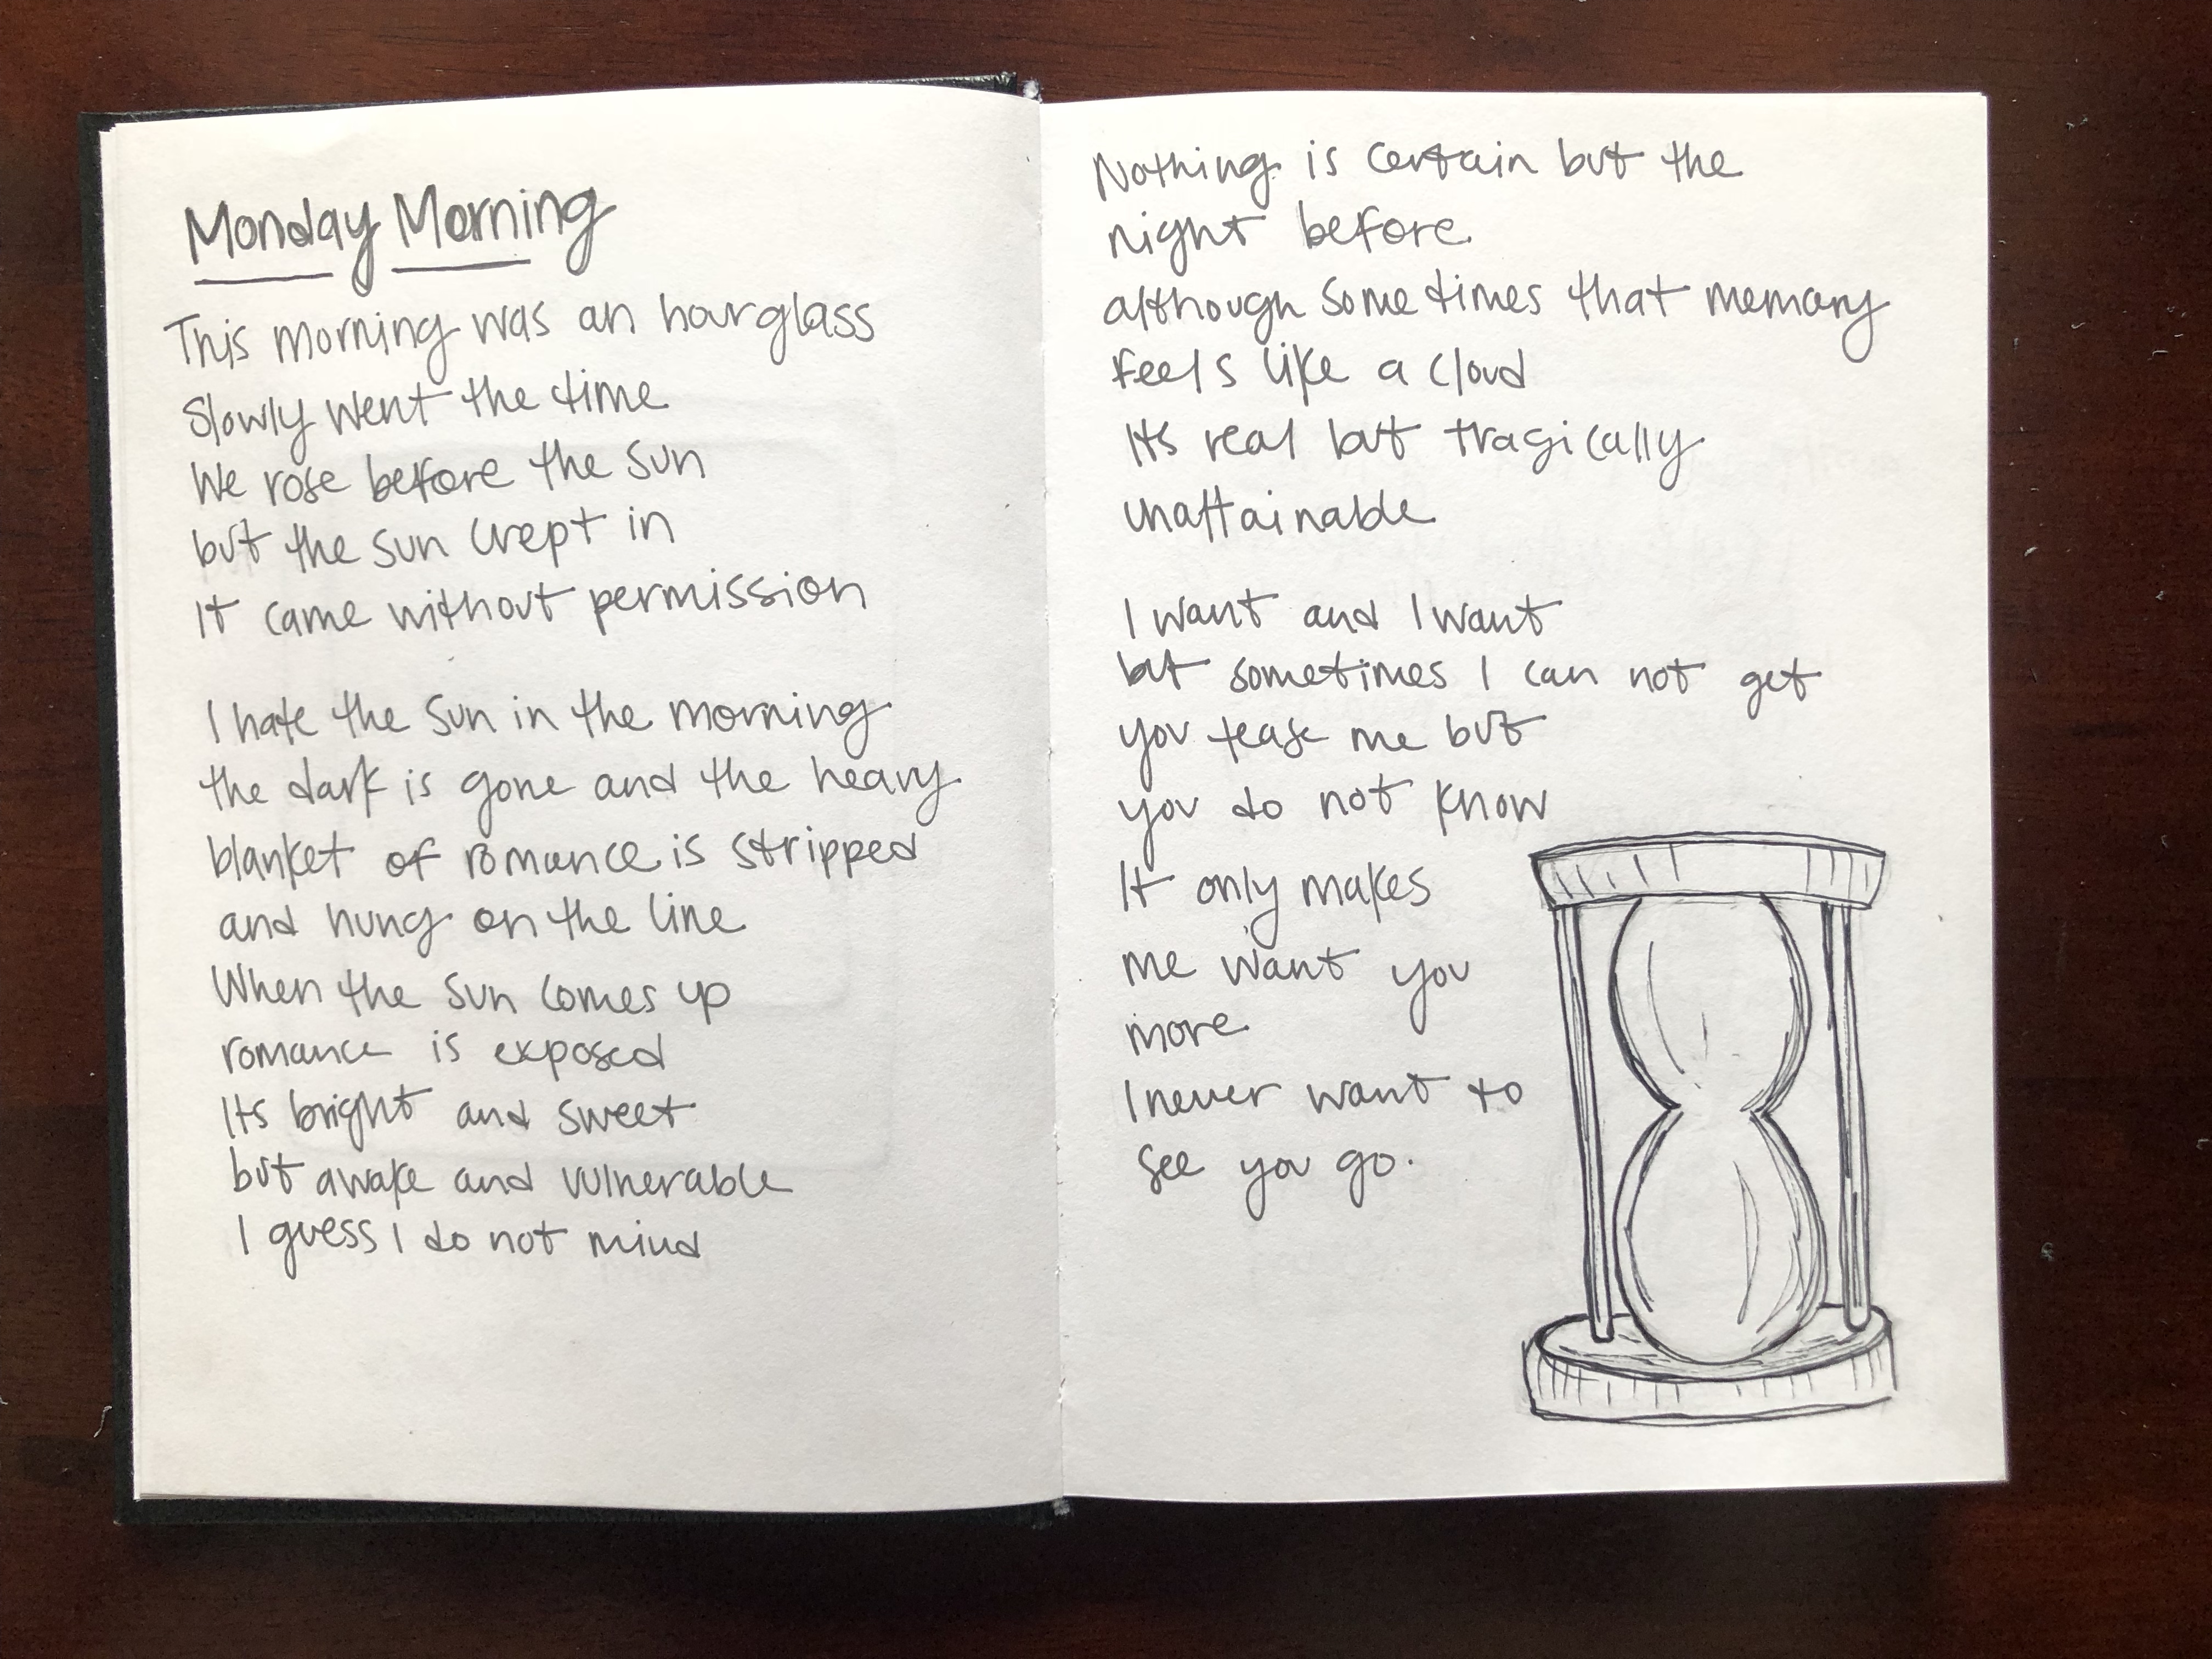 Monday Morning
This morning was an hourglass
Slowly went the time
We rose before the sun
but the sun crept in
It came without permission
I hate the sun in the morning
the dark is gone and the heavy
blanket of romance is stripped
and hung on the line
When the sun comes up
romance is exposed
Its bright and sweet
but awake and vulnerable
I guess I do not mind
Nothing is certain but the
night before.
although sometimes that memory
feels like a cloud
Its real but tragically
unattainable
I want and I want
but sometimes I can not get
you tease me but
you do not know
It only makes
me want you
more
I never want to
see you go.